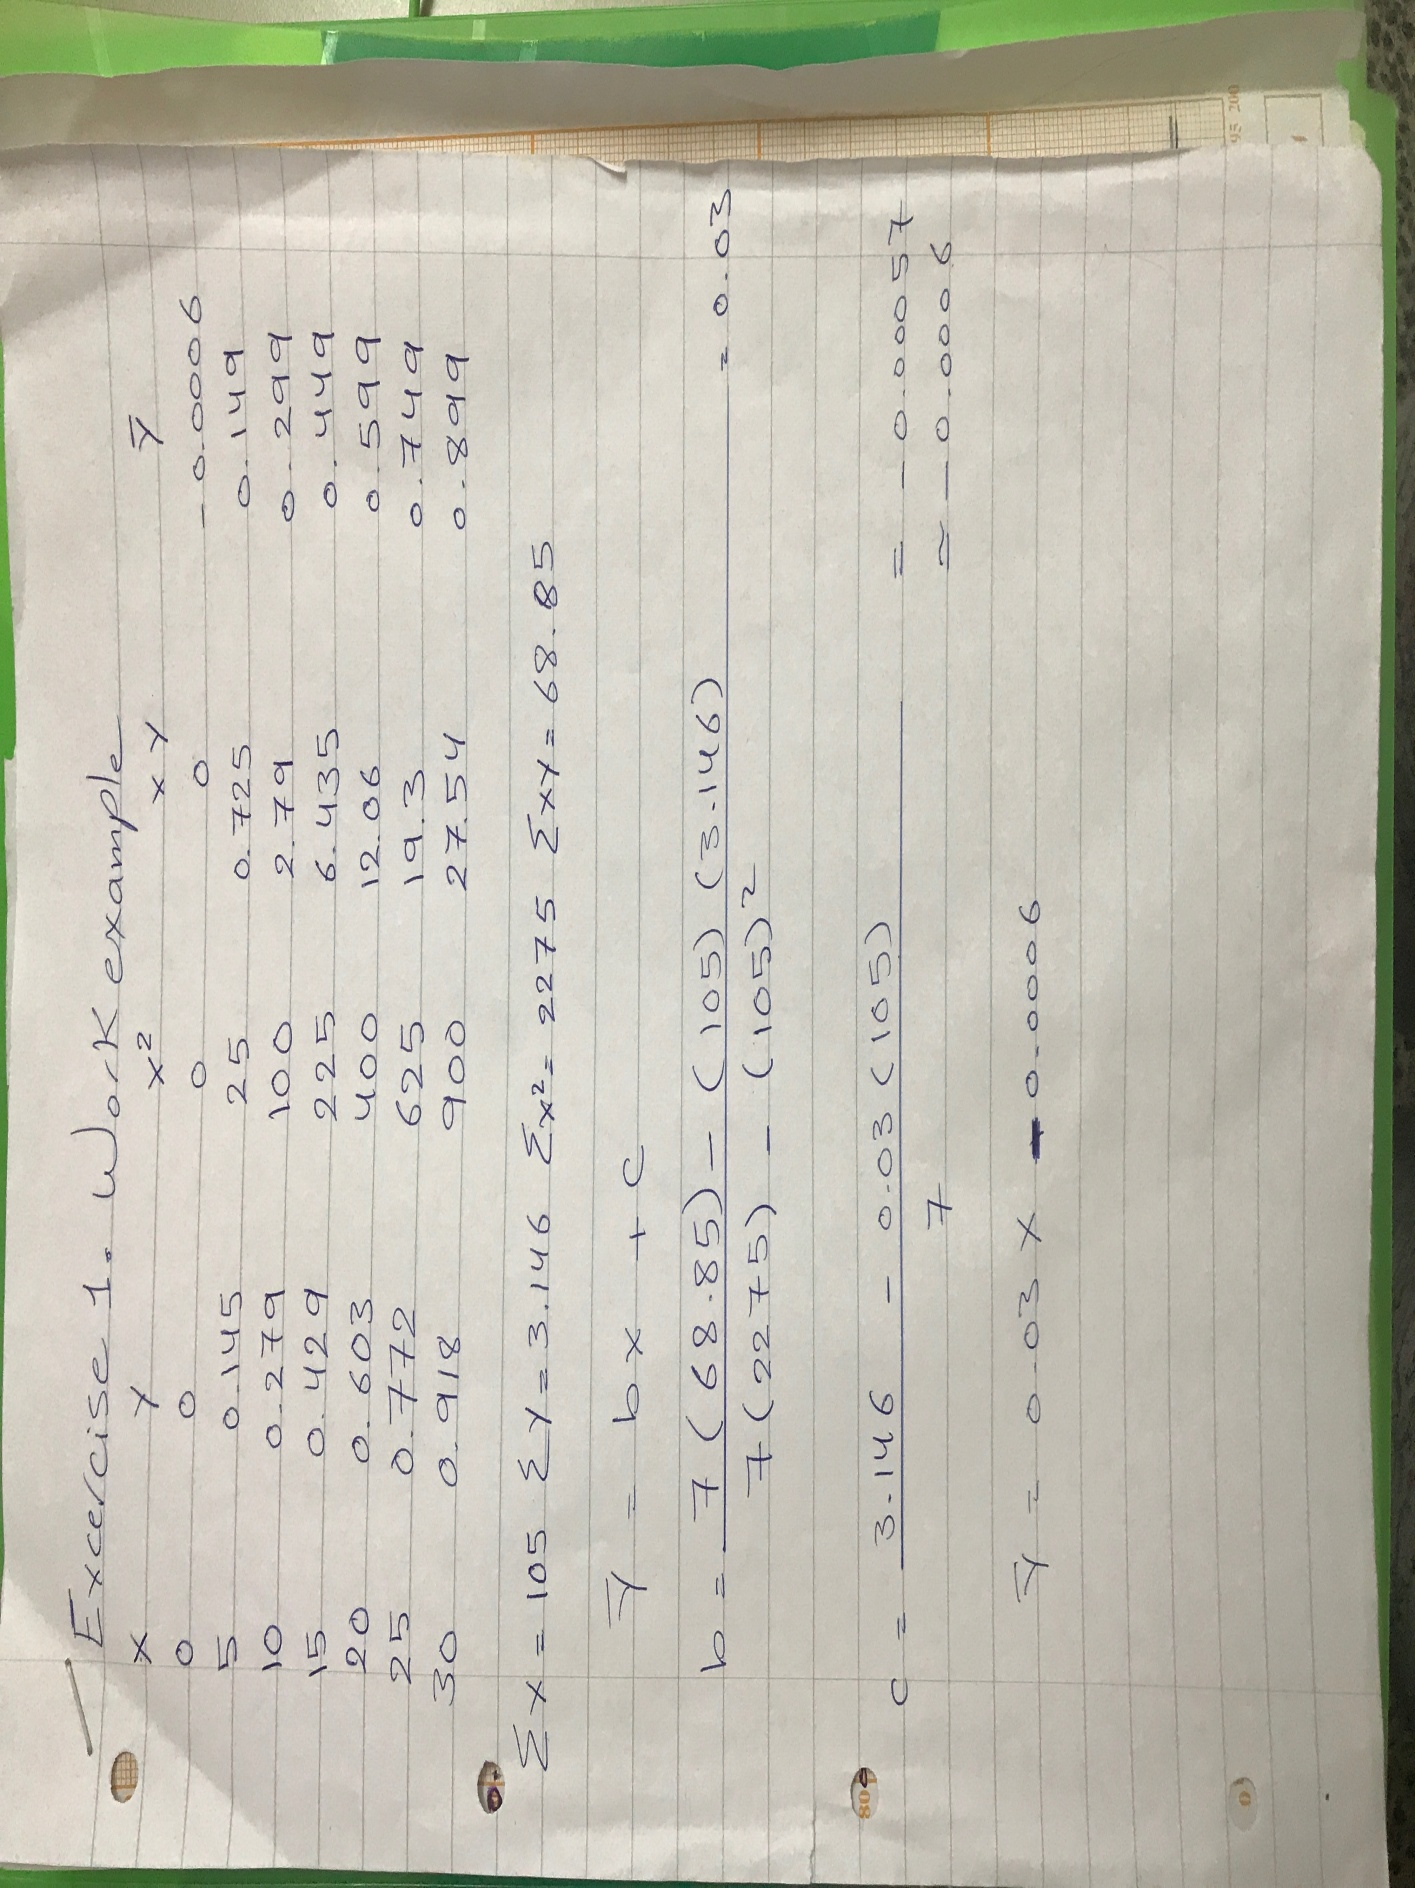 Excercise 1. Work example
x y x² xy ȳ
0 0 0 0 -0.0006
5 0.145 25 0.725 0.149
10 0.279 100 2.79 0.299
15 0.429 225 6.435 0.449
20 0.603 400 12.06 0.599
25 0.772 625 19.3 0.749
30 0.918 900 27.54 0.899
Σx = 105 Σy = 3.146 Σx² = 2275 Σxy = 68.85
ȳ = bx + c
b = 7(68.85) - (105)(3.146) = 0.03
7(2275) - (105)²
c = 3.146 - 0.03(105) = -0.00057
7 ≈ -0.0006
ȳ = 0.03x - 0.0006
95 200
80
0